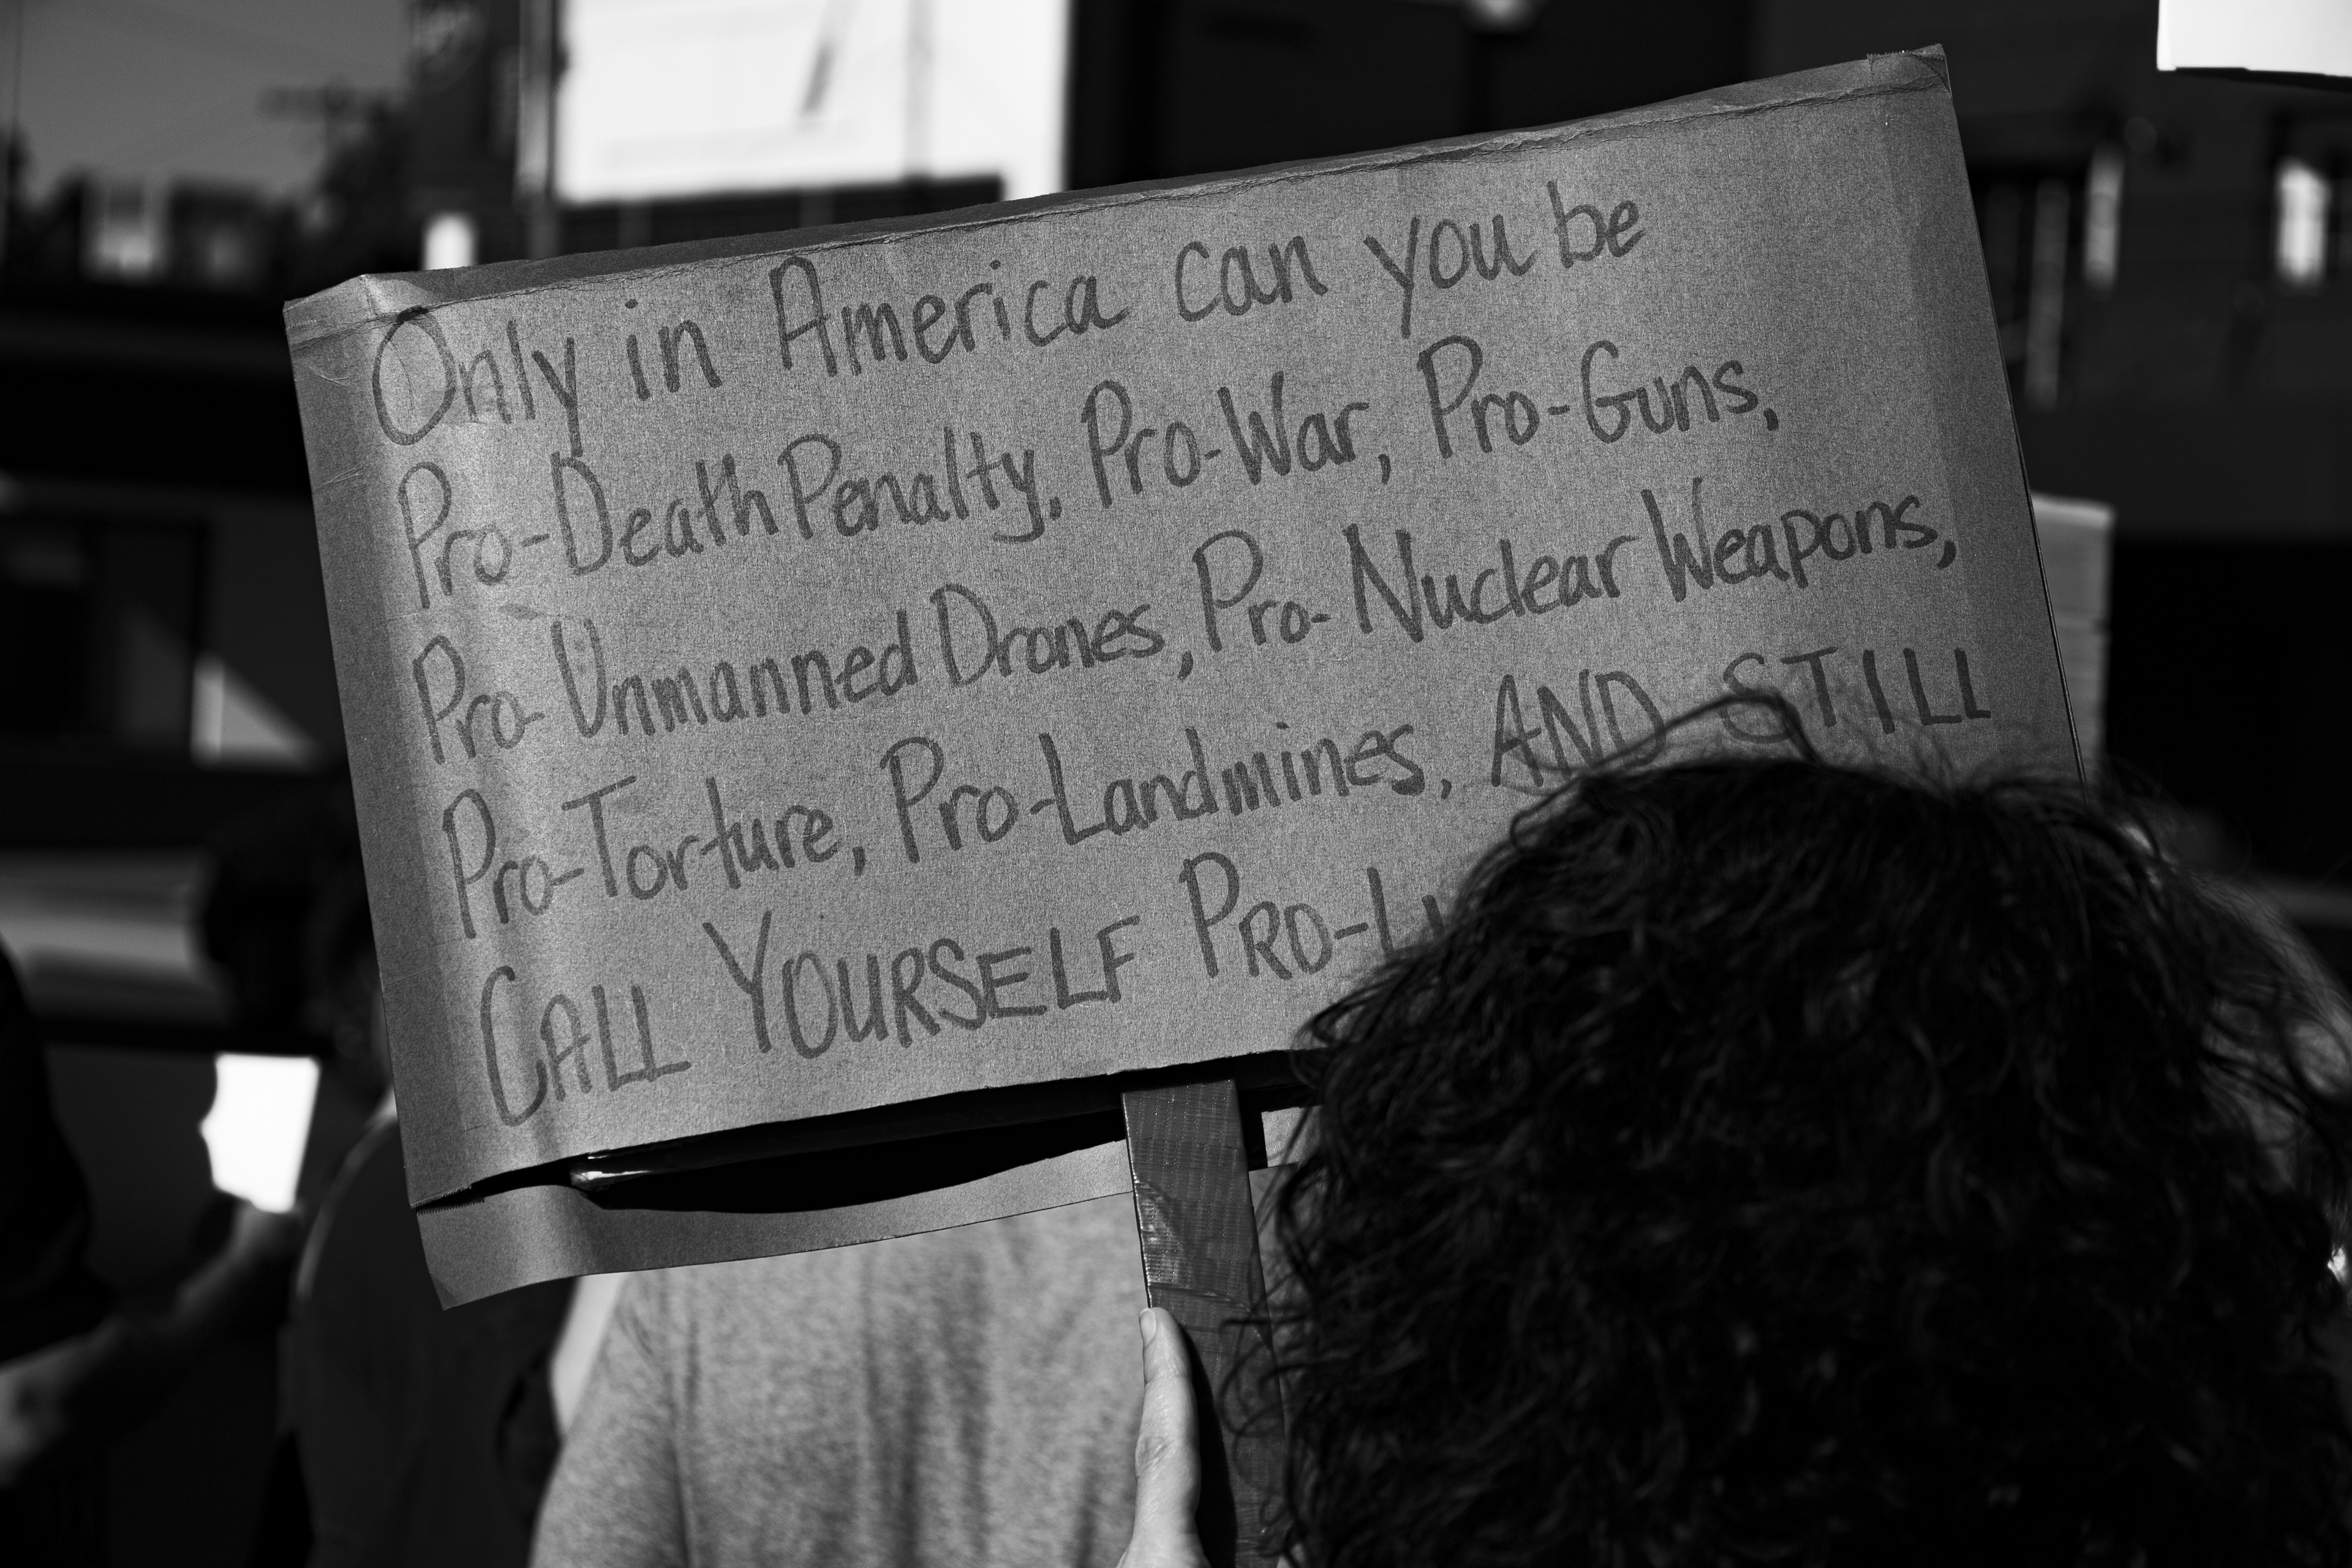 Only in America can you be
Pro-Death Penalty, Pro-War, Pro-Guns,
Pro-Unmanned Drones, Pro-Nuclear Weapons,
Pro-Torture, Pro-Landmines, AND STILL
CALL YOURSELF PRO-LI